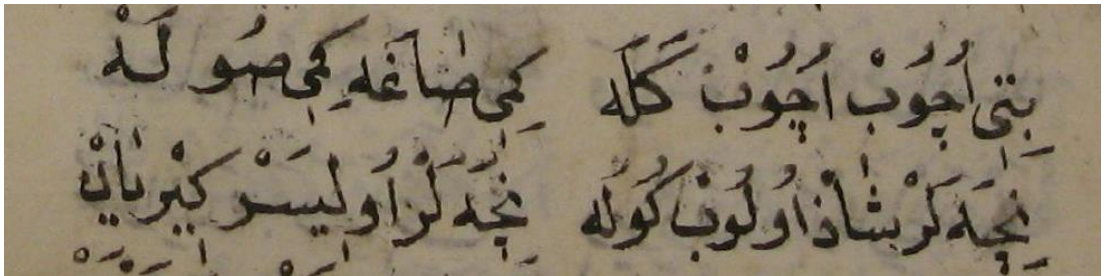 بِتِی اُچُوبْ اُچُوبْ كَلَه كِمِی صَاغَه كِمِی صُولَهْ
نِچَه لَرْ شَاذْ اُولُوبْ كُولَه نِچَه لَرْ اُولِیسَرْ كِیْریَانْ